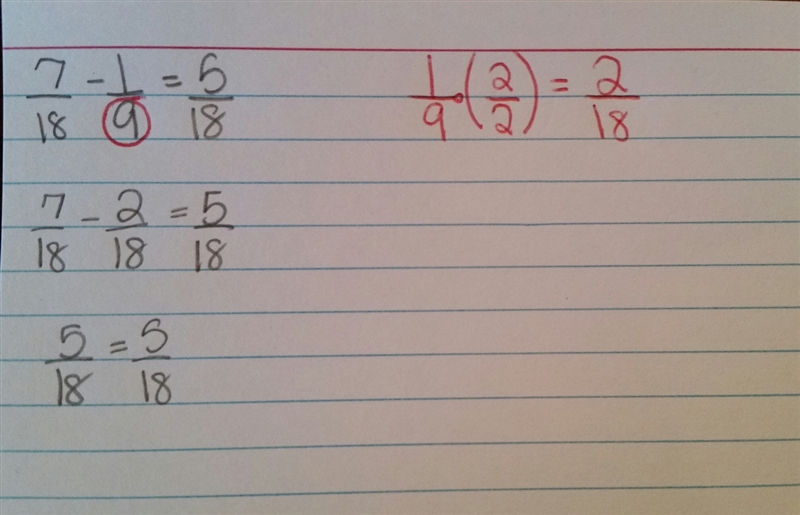 7/18 - 1/9 = 5/18
1/9 • (2/2) = 2/18
7/18 - 2/18 = 5/18
5/18 = 5/18